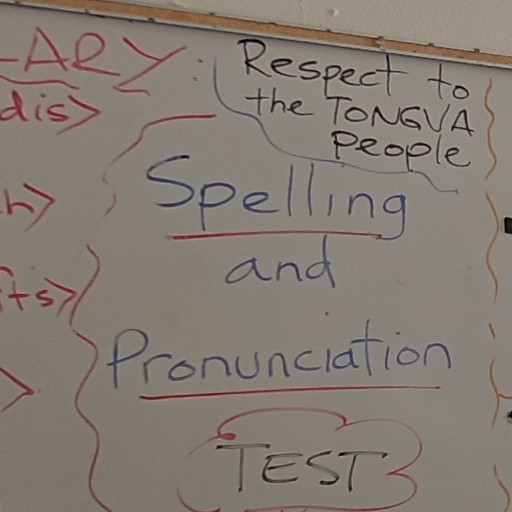 LARY:
dis>
Respect to
the TONGVA
People
Spelling
and
Pronunciation
TEST